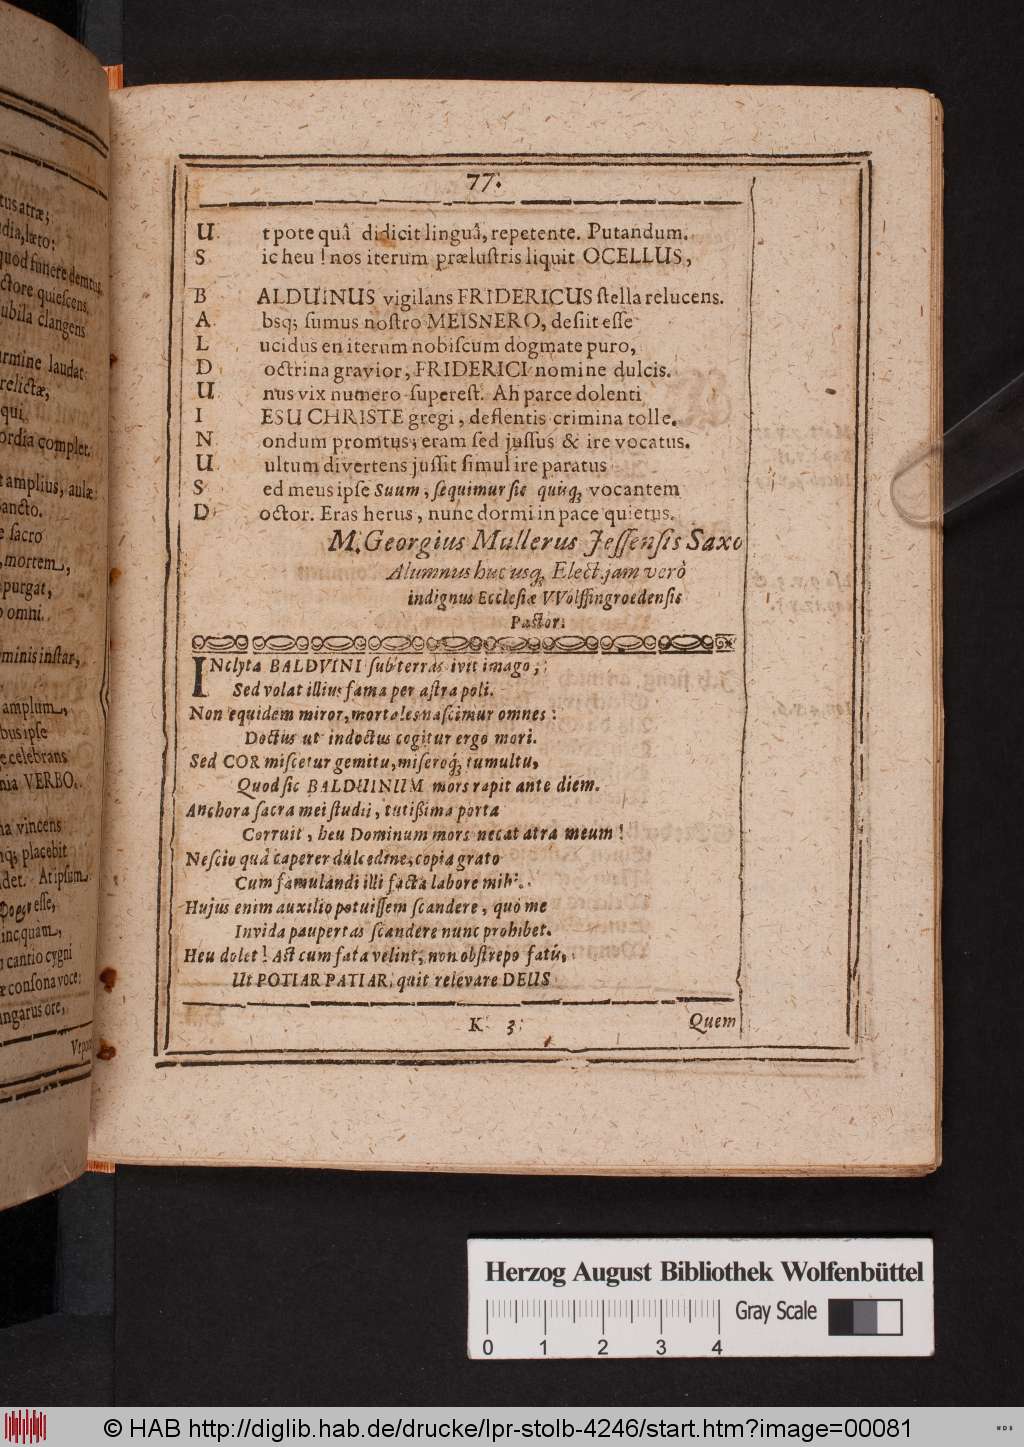 tus atræ;
dia, læto:
quod funere demtus,
ctore quiescens,
ubila clangens
armine laudat
relictæ,
qui
ordia complet.
t amplius, aulæ
ancto.
e sacro
, mortem,
purgat,
o omni.
minis instar,
amplum,
bus ipse
e celebrans
nia VERBO.
na vincens
nq; placebit
det. At ipsum
esse,
inc, quàm,
n cantio cygni
æ consona voce:
ingarus ore,
77.
U t pote quâ didicit linguâ, repetente. Putandum.
S ic heu! nos iterum prælustris liquit OCELLUS,
B ALDUINUS vigilans FRIDERICUS stella relucens.
A bsq; sumus nostro MEISNERO, desiit esse
L ucidus en iterum nobiscum dogmate puro,
D octrina gravior, FRIDERICI nomine dulcis.
U nus vix numero superest. Ah parce dolenti
I ESU CHRISTE gregi, deflentis crimina tolle.
N ondum promtus; eram sed jussus & ire vocatus.
U ultum divertens jussit simul ire paratus
S ed meus ipse Suum, sequimur sic quisq; vocantem
D octor. Eras herus, nunc dormi in pace quietus.
M. Georgius Mullerus Jessensis Saxo
Alumnus huc usq; Elect. jam verò
indignus Ecclesiæ VVolffingroedensis
Pastor.
INclyta BALDVINI sub terras ivit imago;
Sed volat illius fama per astra poli.
Non equidem miror, mortales nascimur omnes:
Doctus ut indoctus cogitur ergo mori.
Sed COR miscetur gemitu, miseroq; tumultu,
Quod sic BALDUINUM mors rapit ante diem.
Anchora sacra mei studii, tutißima porta
Corruit, heu Dominum mors necat atra meum!
Nescio quâ caperer dulcedine, copia grato
Cum famulandi illi facta labore mihi.
Hujus enim auxilio potuissem scandere, quò me
Invida paupertas scandere nunc prohibet.
Heu dolet! Ast cum fata velint, non obstrepo fatis,
Ut POTIAR PATIAR, quit relevare DEUS
K 3
Quem
Herzog August Bibliothek Wolfenbüttel
Gray Scale
0 1 2 3 4
© HAB http://diglib.hab.de/drucke/lpr-stolb-4246/start.htm?image=00081